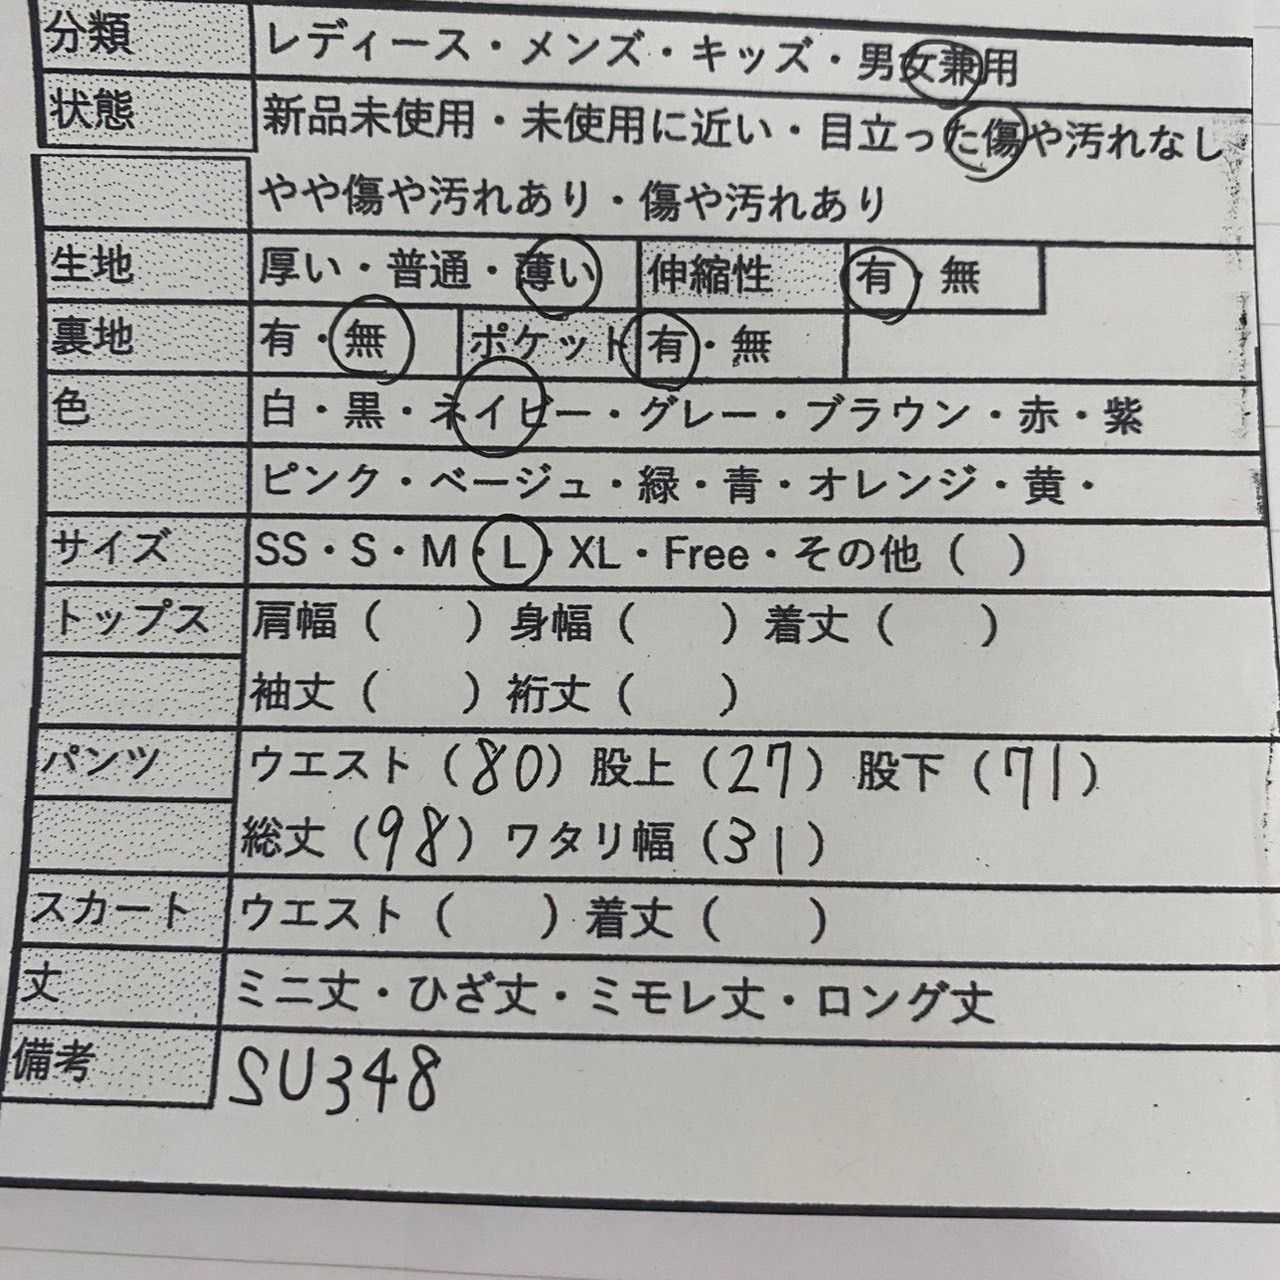 分類 レディース・メンズ・キッズ・男女兼用
状態 新品未使用・未使用に近い・目立った傷や汚れなし
やや傷や汚れあり・傷や汚れあり
生地 厚い・普通・薄い 伸縮性 有・無
裏地 有・無 ポケット 有・無
色 白・黒・ネイビー・グレー・ブラウン・赤・紫
ピンク・ベージュ・緑・青・オレンジ・黄・
サイズ SS・S・M・L・XL・Free・その他（ ）
トップス 肩幅（ ）身幅（ ）着丈（ ）
袖丈（ ）裄丈（ ）
パンツ ウエスト（80）股上（27）股下（71）
総丈（98）ワタリ幅（31）
スカート ウエスト（ ）着丈（ ）
丈 ミニ丈・ひざ丈・ミモレ丈・ロング丈
備考 SU348